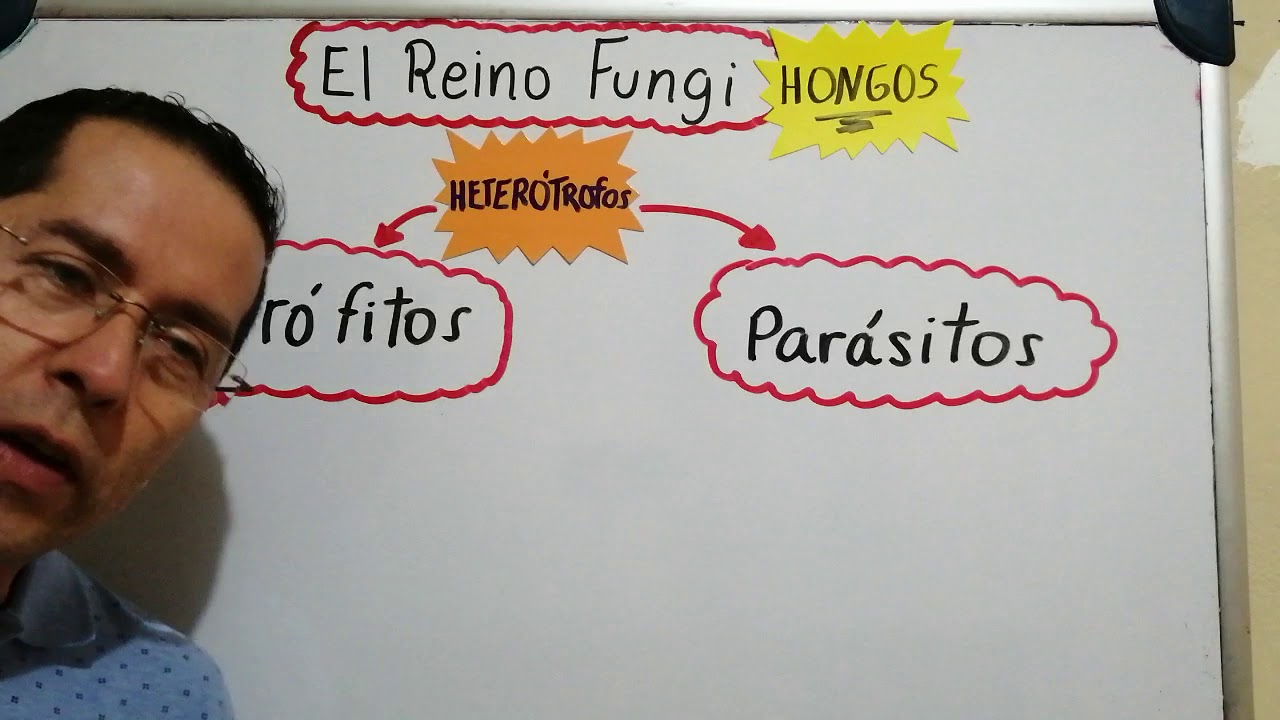 El Reino Fungi HONGOS
HETERÓTROFOS
rófitos
Parásitos